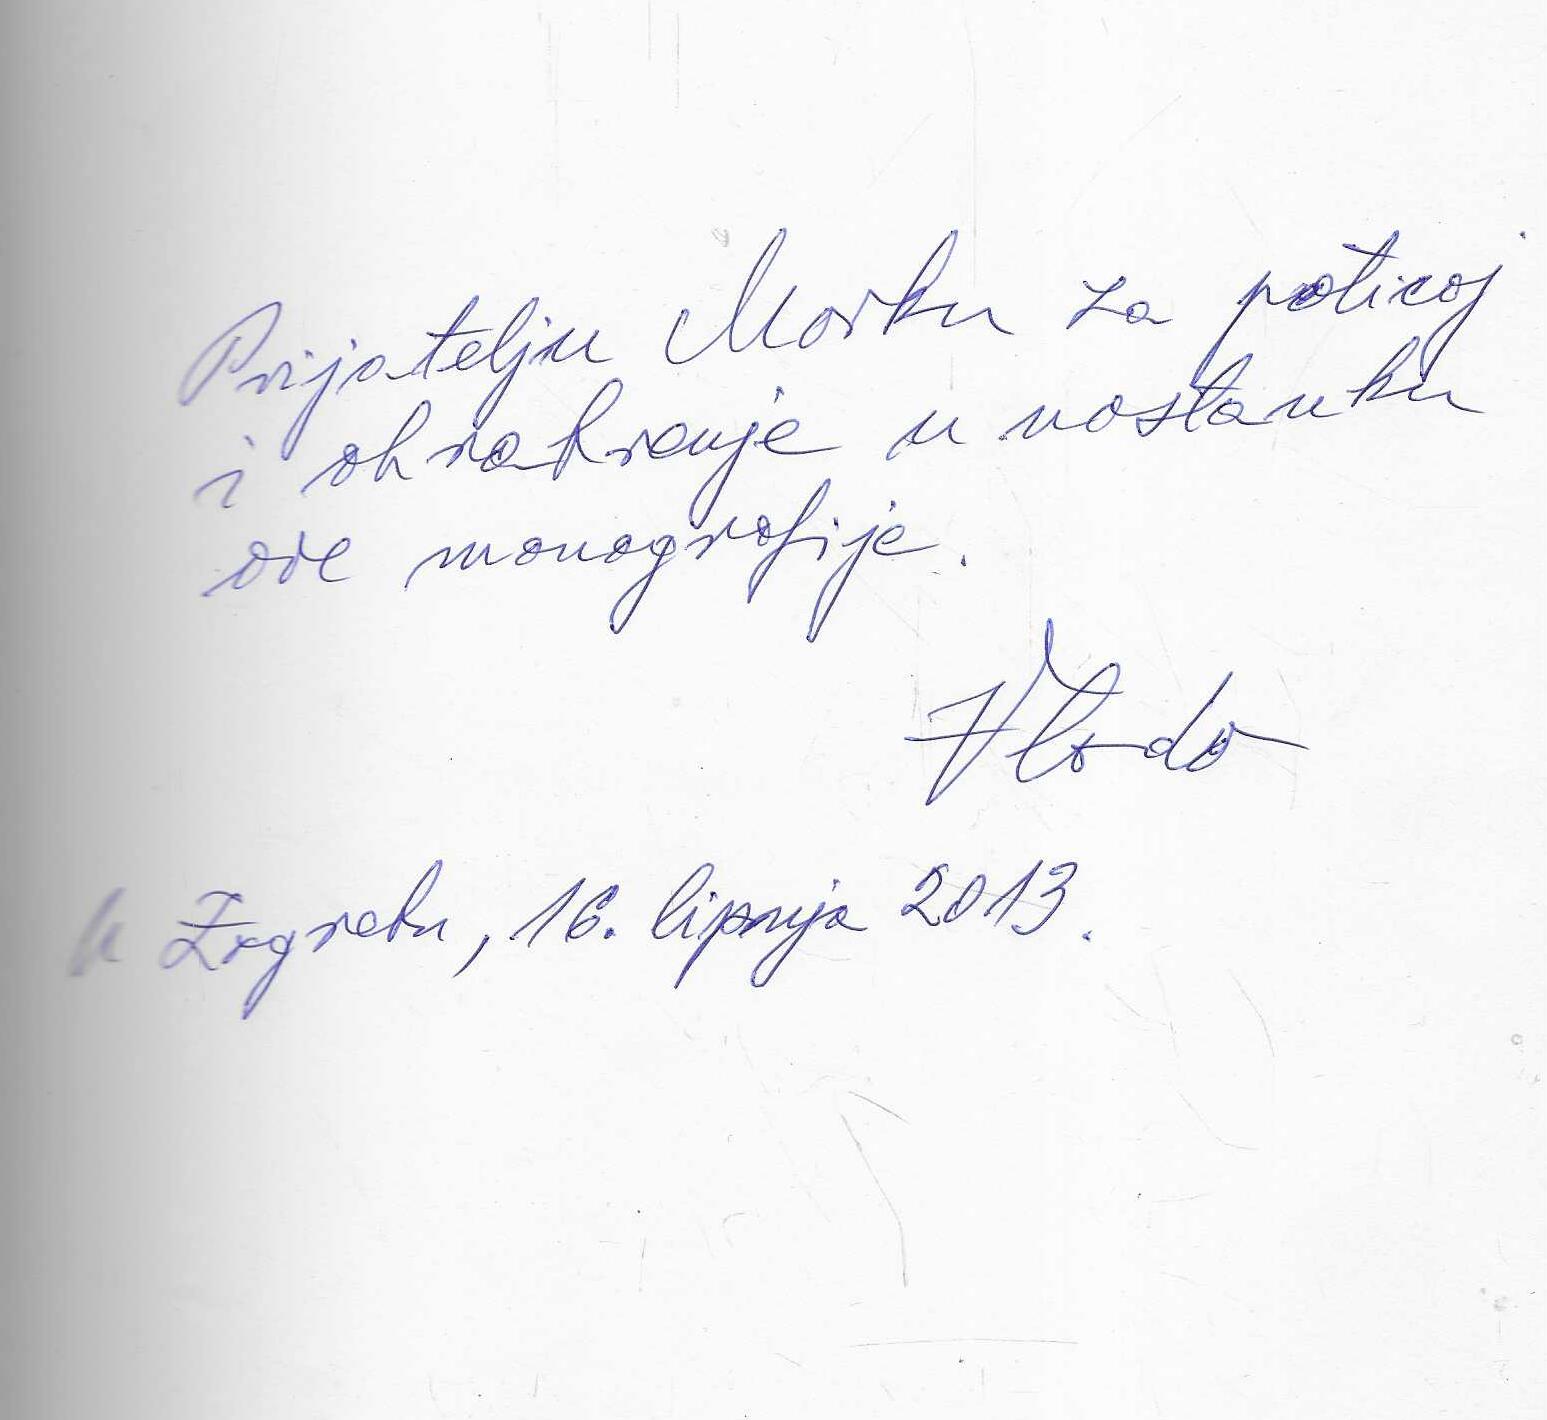 Prijatelju Marku za poticaj
i ohrabrenje u nastanku
ove monografije.
Vlado
U Zagrebu, 16. lipnja 2013.